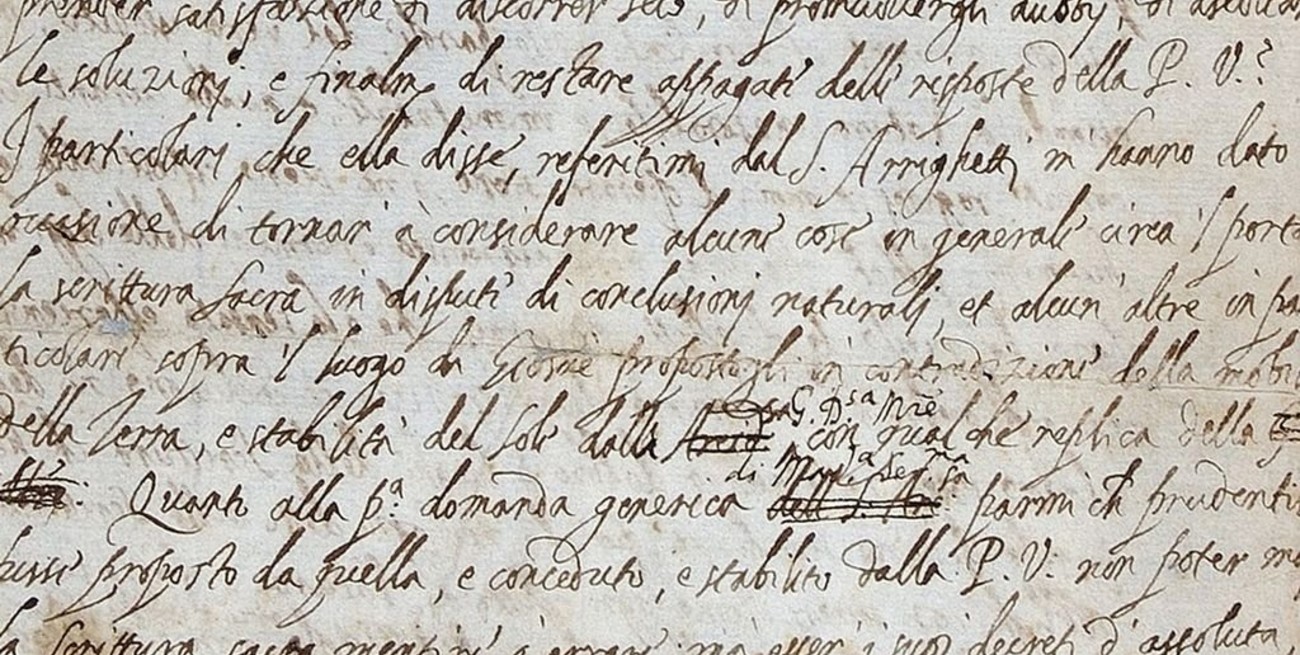 prender satisfazione di discorrer seco, di promuovergli dubbij, di ascoltar
le soluzionj, e finalm di restare appagati delle risposte della P. V.?
I particolarj che ella disse, referitimi dal S. Arrighetti m hanno dato
occasione di tornar à considerare alcune cose in generale circa 'l porta
la scrittura sacra in dispute di conclusionj naturalj, et alcun' altre in par
ticolare sopra 'l luogo di Giosuè propostogli in contradizione della mobil
della Terra, e stabilità del Sole dalla G. D.sa M.re, con qualche replica della
di Mad.a Ser.ma
Quanto alla p.a domanda generica parmi ch prudentis
fusse proposto da quella, e conceduto, e stabilito dalla P. V. non poter ma
la Scrittura sacra mentire ò errare, mà esser i suoi decreti d' assoluta,